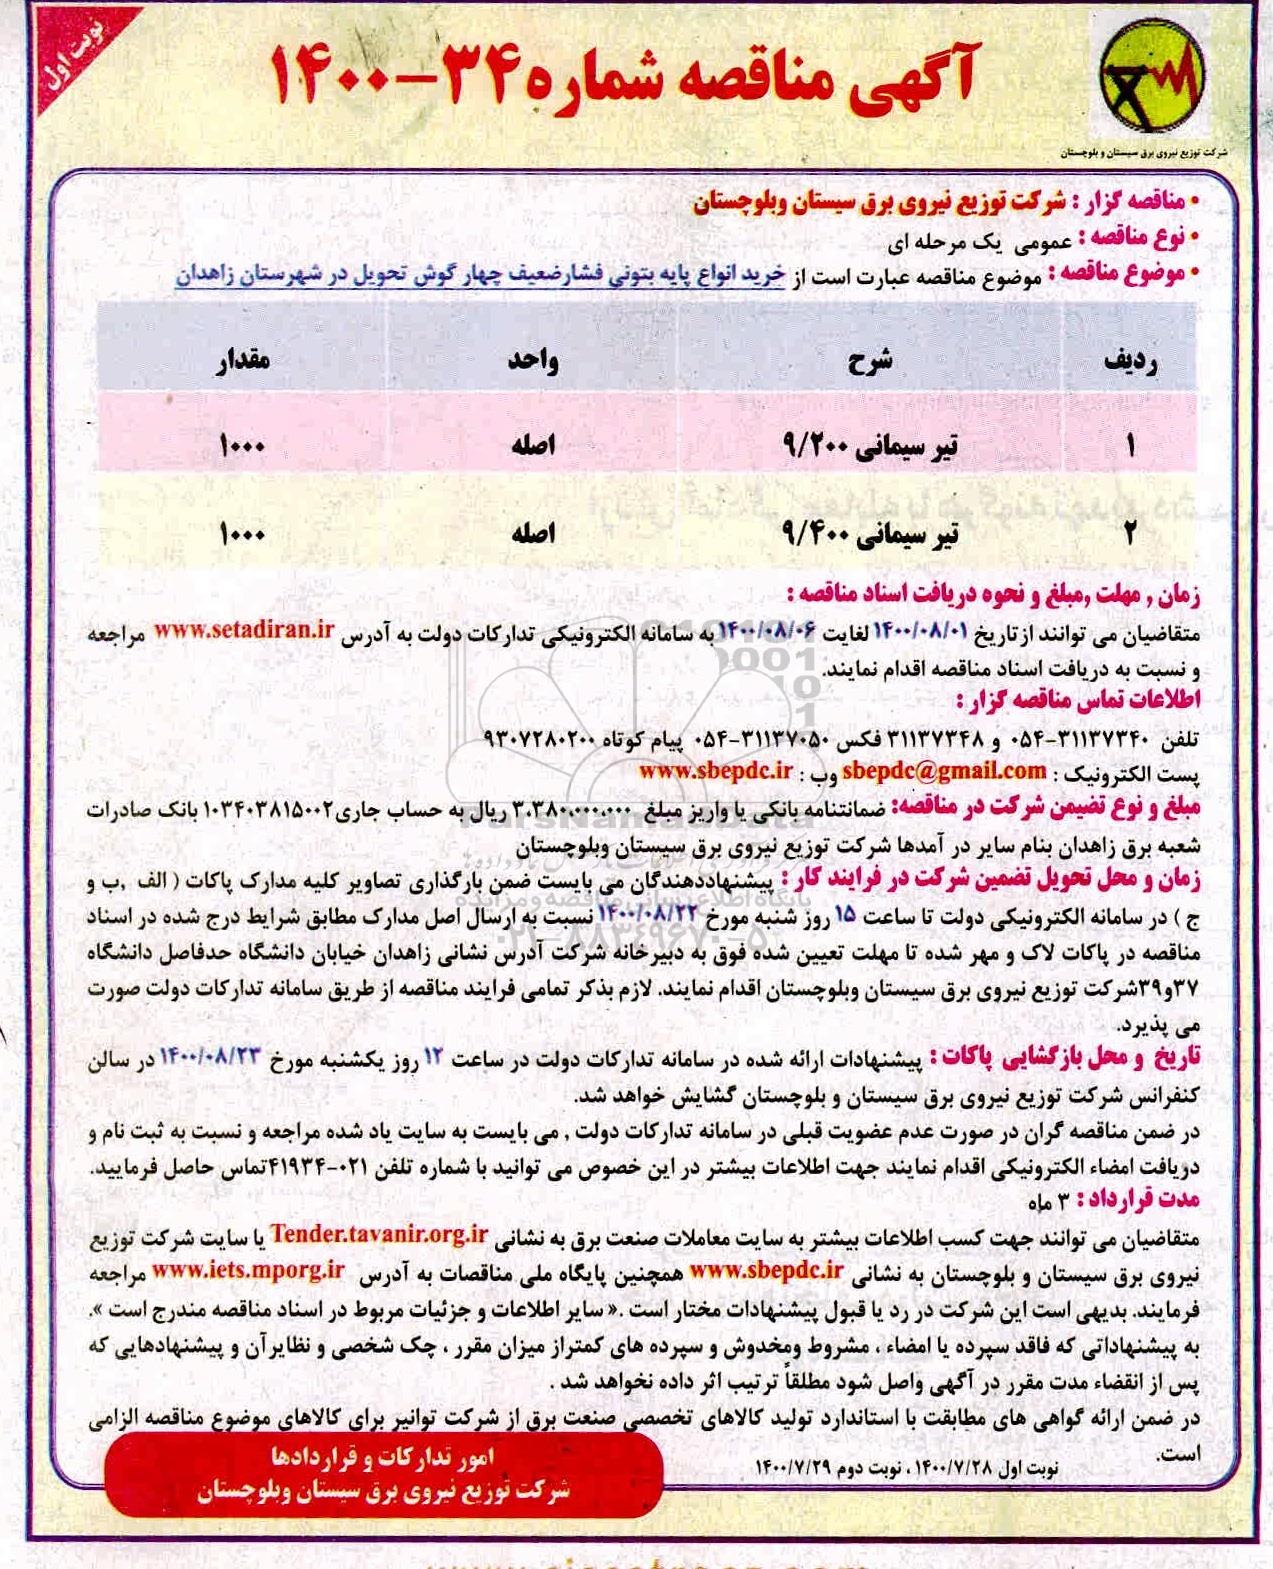 نوبت اول
آگهی مناقصه شماره ۳۴-۱۴۰۰
شرکت توزیع نیروی برق سیستان و بلوچستان
• مناقصه گزار : شرکت توزیع نیروی برق سیستان وبلوچستان
• نوع مناقصه : عمومی یک مرحله ای
• موضوع مناقصه : موضوع مناقصه عبارت است از خرید انواع پایه بتونی فشارضعیف چهار گوش تحویل در شهرستان زاهدان
ردیف شرح واحد مقدار
۱ تیر سیمانی ۹/۲۰۰ اصله ۱۰۰۰
۲ تیر سیمانی ۹/۴۰۰ اصله ۱۰۰۰
زمان , مهلت ,مبلغ و نحوه دریافت اسناد مناقصه :
متقاضیان می توانند ازتاریخ ۱۴۰۰/۰۸/۰۱ لغایت ۱۴۰۰/۰۸/۰۶ به سامانه الکترونیکی تدارکات دولت به آدرس www.setadiran.ir مراجعه
و نسبت به دریافت اسناد مناقصه اقدام نمایند.
اطلاعات تماس مناقصه گزار :
تلفن ۳۱۱۳۷۳۴۰-۰۵۴ و ۳۱۱۳۷۳۴۸ فکس ۳۱۱۳۷۰۵۰-۰۵۴ پیام کوتاه ۹۳۰۷۲۸۰۲۰۰
پست الکترونیک : sbepdc@gmail.com وب : www.sbepdc.ir
مبلغ و نوع تضیمن شرکت در مناقصه: ضمانتنامه بانکی یا واریز مبلغ ۳،۳۸۰،۰۰۰،۰۰۰ ریال به حساب جاری۱۰۳۴۰۳۸۱۵۰۰۲ بانک صادرات
شعبه برق زاهدان بنام سایر در آمدها شرکت توزیع نیروی برق سیستان وبلوچستان
زمان و محل تحویل تضمین شرکت در فرایند کار : پیشنهاددهندگان می بایست ضمن بارگذاری تصاویر کلیه مدارک پاکات ( الف ,ب و
ج ) در سامانه الکترونیکی دولت تا ساعت ۱۵ روز شنبه مورخ ۱۴۰۰/۰۸/۲۲ نسبت به ارسال اصل مدارک مطابق شرایط درج شده در اسناد
مناقصه در پاکات لاک و مهر شده تا مهلت تعیین شده فوق به دبیرخانه شرکت آدرس نشانی زاهدان خیابان دانشگاه حدفاصل دانشگاه
۳۷و۳۹شرکت توزیع نیروی برق سیستان وبلوچستان اقدام نمایند. لازم بذکر تمامی فرایند مناقصه از طریق سامانه تدارکات دولت صورت
می پذیرد.
تاریخ و محل بازگشایی پاکات : پیشنهادات ارائه شده در سامانه تدارکات دولت در ساعت ۱۲ روز یکشنبه مورخ ۱۴۰۰/۰۸/۲۳ در سالن
کنفرانس شرکت توزیع نیروی برق سیستان و بلوچستان گشایش خواهد شد.
در ضمن مناقصه گران در صورت عدم عضویت قبلی در سامانه تدارکات دولت , می بایست به سایت یاد شده مراجعه و نسبت به ثبت نام و
دریافت امضاء الکترونیکی اقدام نمایند جهت اطلاعات بیشتر در این خصوص می توانید با شماره تلفن ۰۲۱-۴۱۹۳۴تماس حاصل فرمایید.
مدت قرارداد : ۳ ماه
متقاضیان می توانند جهت کسب اطلاعات بیشتر به سایت معاملات صنعت برق به نشانی Tender.tavanir.org.ir یا سایت شرکت توزیع
نیروی برق سیستان و بلوچستان به نشانی www.sbepdc.ir همچنین پایگاه ملی مناقصات به آدرس www.iets.mporg.ir مراجعه
فرمایند. بدیهی است این شرکت در رد یا قبول پیشنهادات مختار است .« سایر اطلاعات و جزئیات مربوط در اسناد مناقصه مندرج است ».
به پیشنهاداتی که فاقد سپرده یا امضاء ، مشروط ومخدوش و سپرده های کمتراز میزان مقرر ، چک شخصی و نظایرآن و پیشنهادهایی که
پس از انقضاء مدت مقرر در آگهی واصل شود مطلقاً ترتیب اثر داده نخواهد شد .
در ضمن ارائه گواهی های مطابقت با استاندارد تولید کالاهای تخصصی صنعت برق از شرکت توانیر برای کالاهای موضوع مناقصه الزامی
است.
نوبت اول ۱۴۰۰/۷/۲۸ ، نوبت دوم ۱۴۰۰/۷/۲۹
امور تدارکات و قراردادها
شرکت توزیع نیروی برق سیستان وبلوچستان
ParsNamadData
پایگاه اطلاع رسانی مناقصه و مزایده
۰۲۱-۸۸۳۴۹۶۷۰-۵